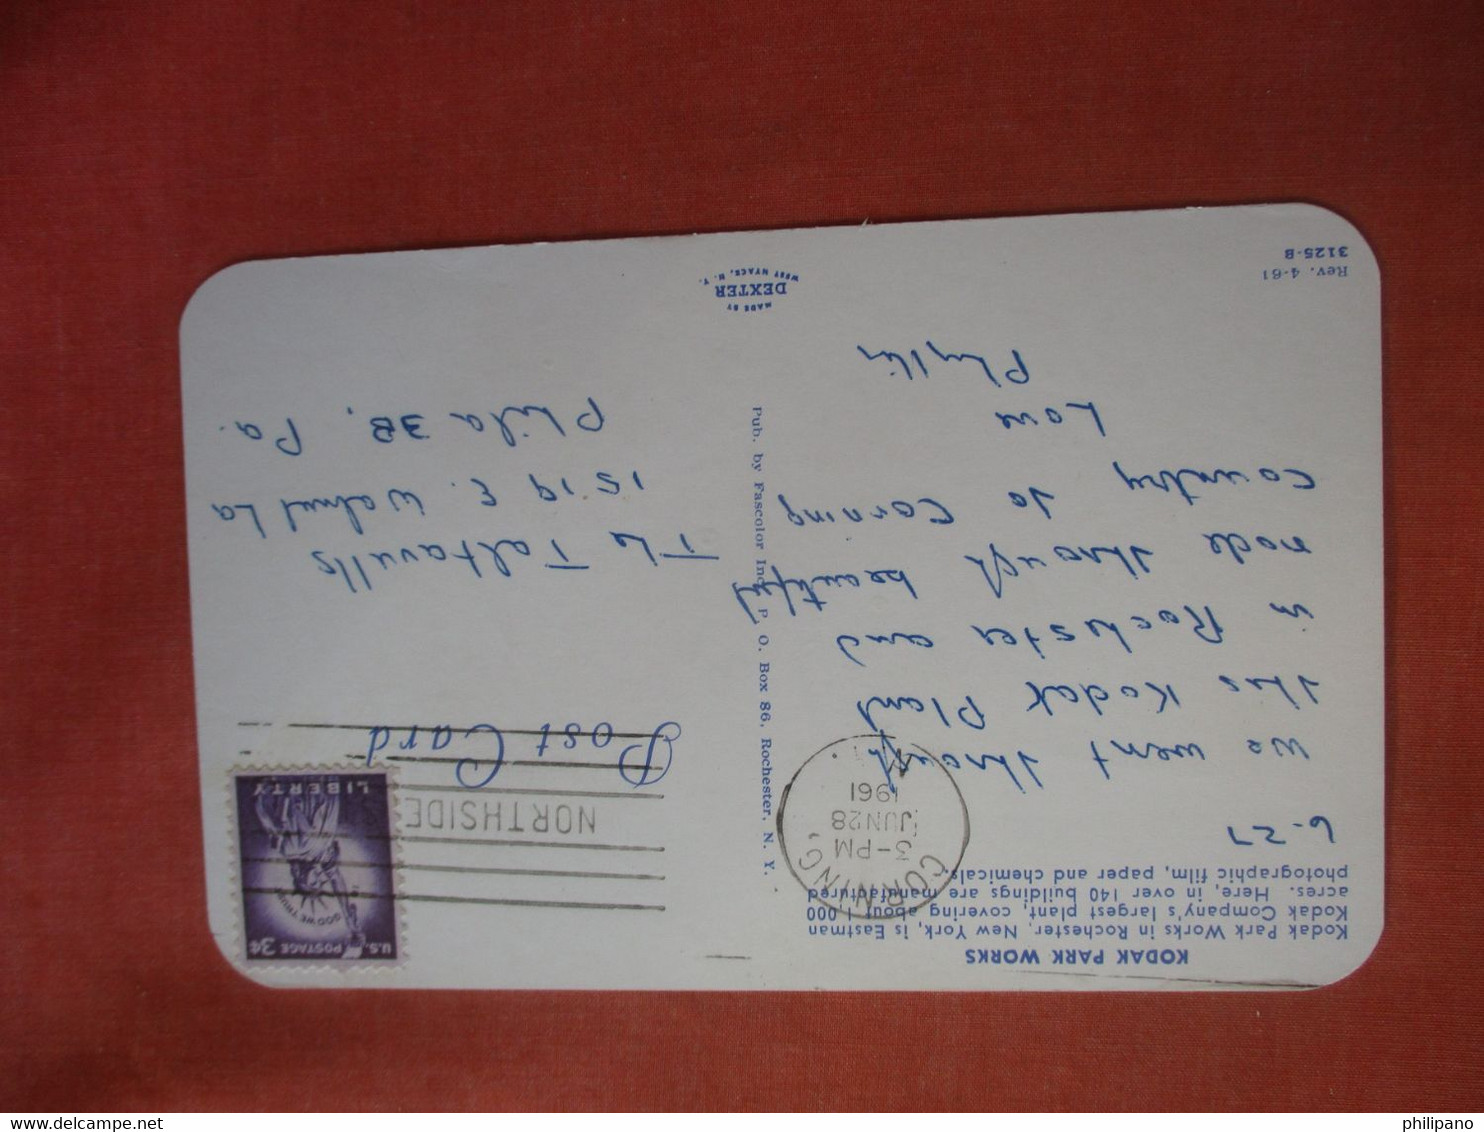 KODAK PARK WORKS
Kodak Park Works in Rochester, New York, is Eastman
Kodak Company's largest plant, covering about 1,000
acres. Here, in over 140 buildings are manufactured
photographic film, paper and chemicals.
6-27
We went through
this Kodak Plant
in Rochester and
rode through beautiful
country to Corning
Love
Phyllis
Rev. 4-61
3125-B
CORNING
3-PM
JUN 28
1961
N.Y.
Pub. by Fascolor Inc., P. O. Box 86, Rochester, N. Y.
MADE BY
DEXTER
WEST NYACK, N. Y.
U.S. POSTAGE 3¢
IN GOD WE TRUST
LIBERTY
NORTHSIDE
Post Card
The Taltavulls
1519 E. Walnut La
Phila 38, Pa.
philipano